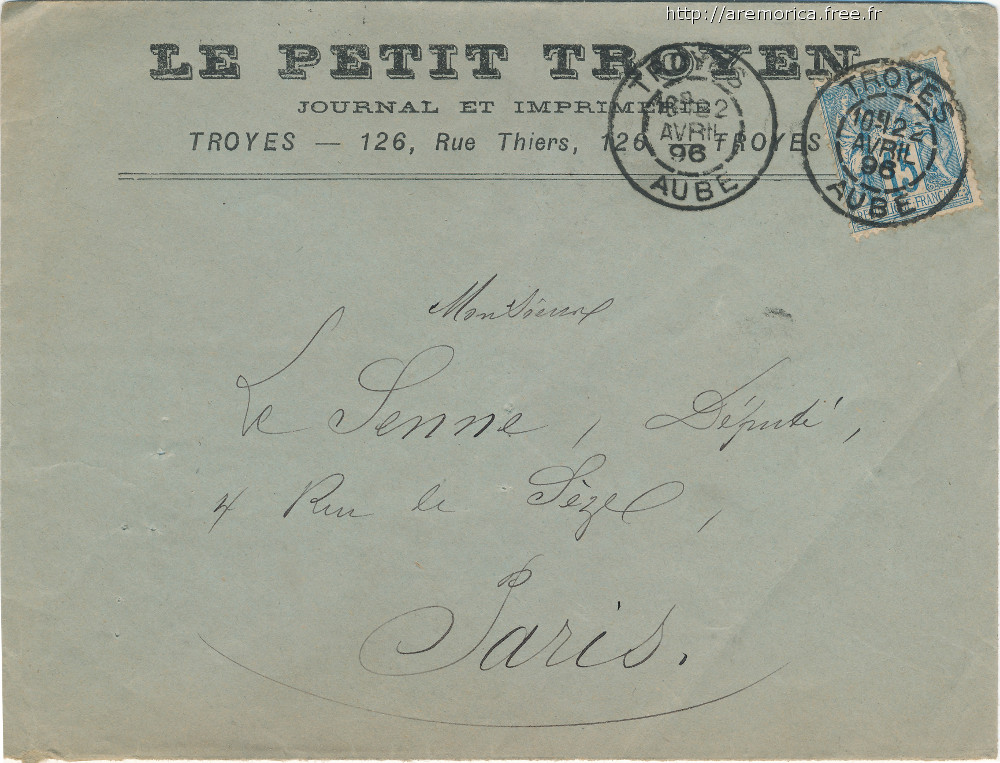 http://aremorica.free.fr
LE PETIT TROYEN
JOURNAL ET IMPRIMERIE
TROYES — 126, Rue Thiers, 126 — TROYES
TROYES
22
AVRIL
96
AUBE
TROYES
22
AVRIL
96
AUBE
15
REPUBLIQUE FRANÇAISE
Monsieur
Le Senne, Député,
4 Rue de Sèze,
Paris.